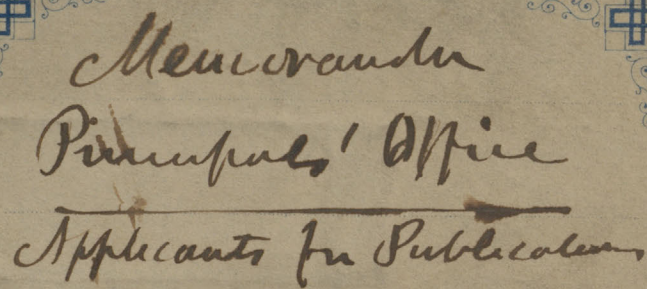 Memoranda
Principals' Office
Applicants for Publications